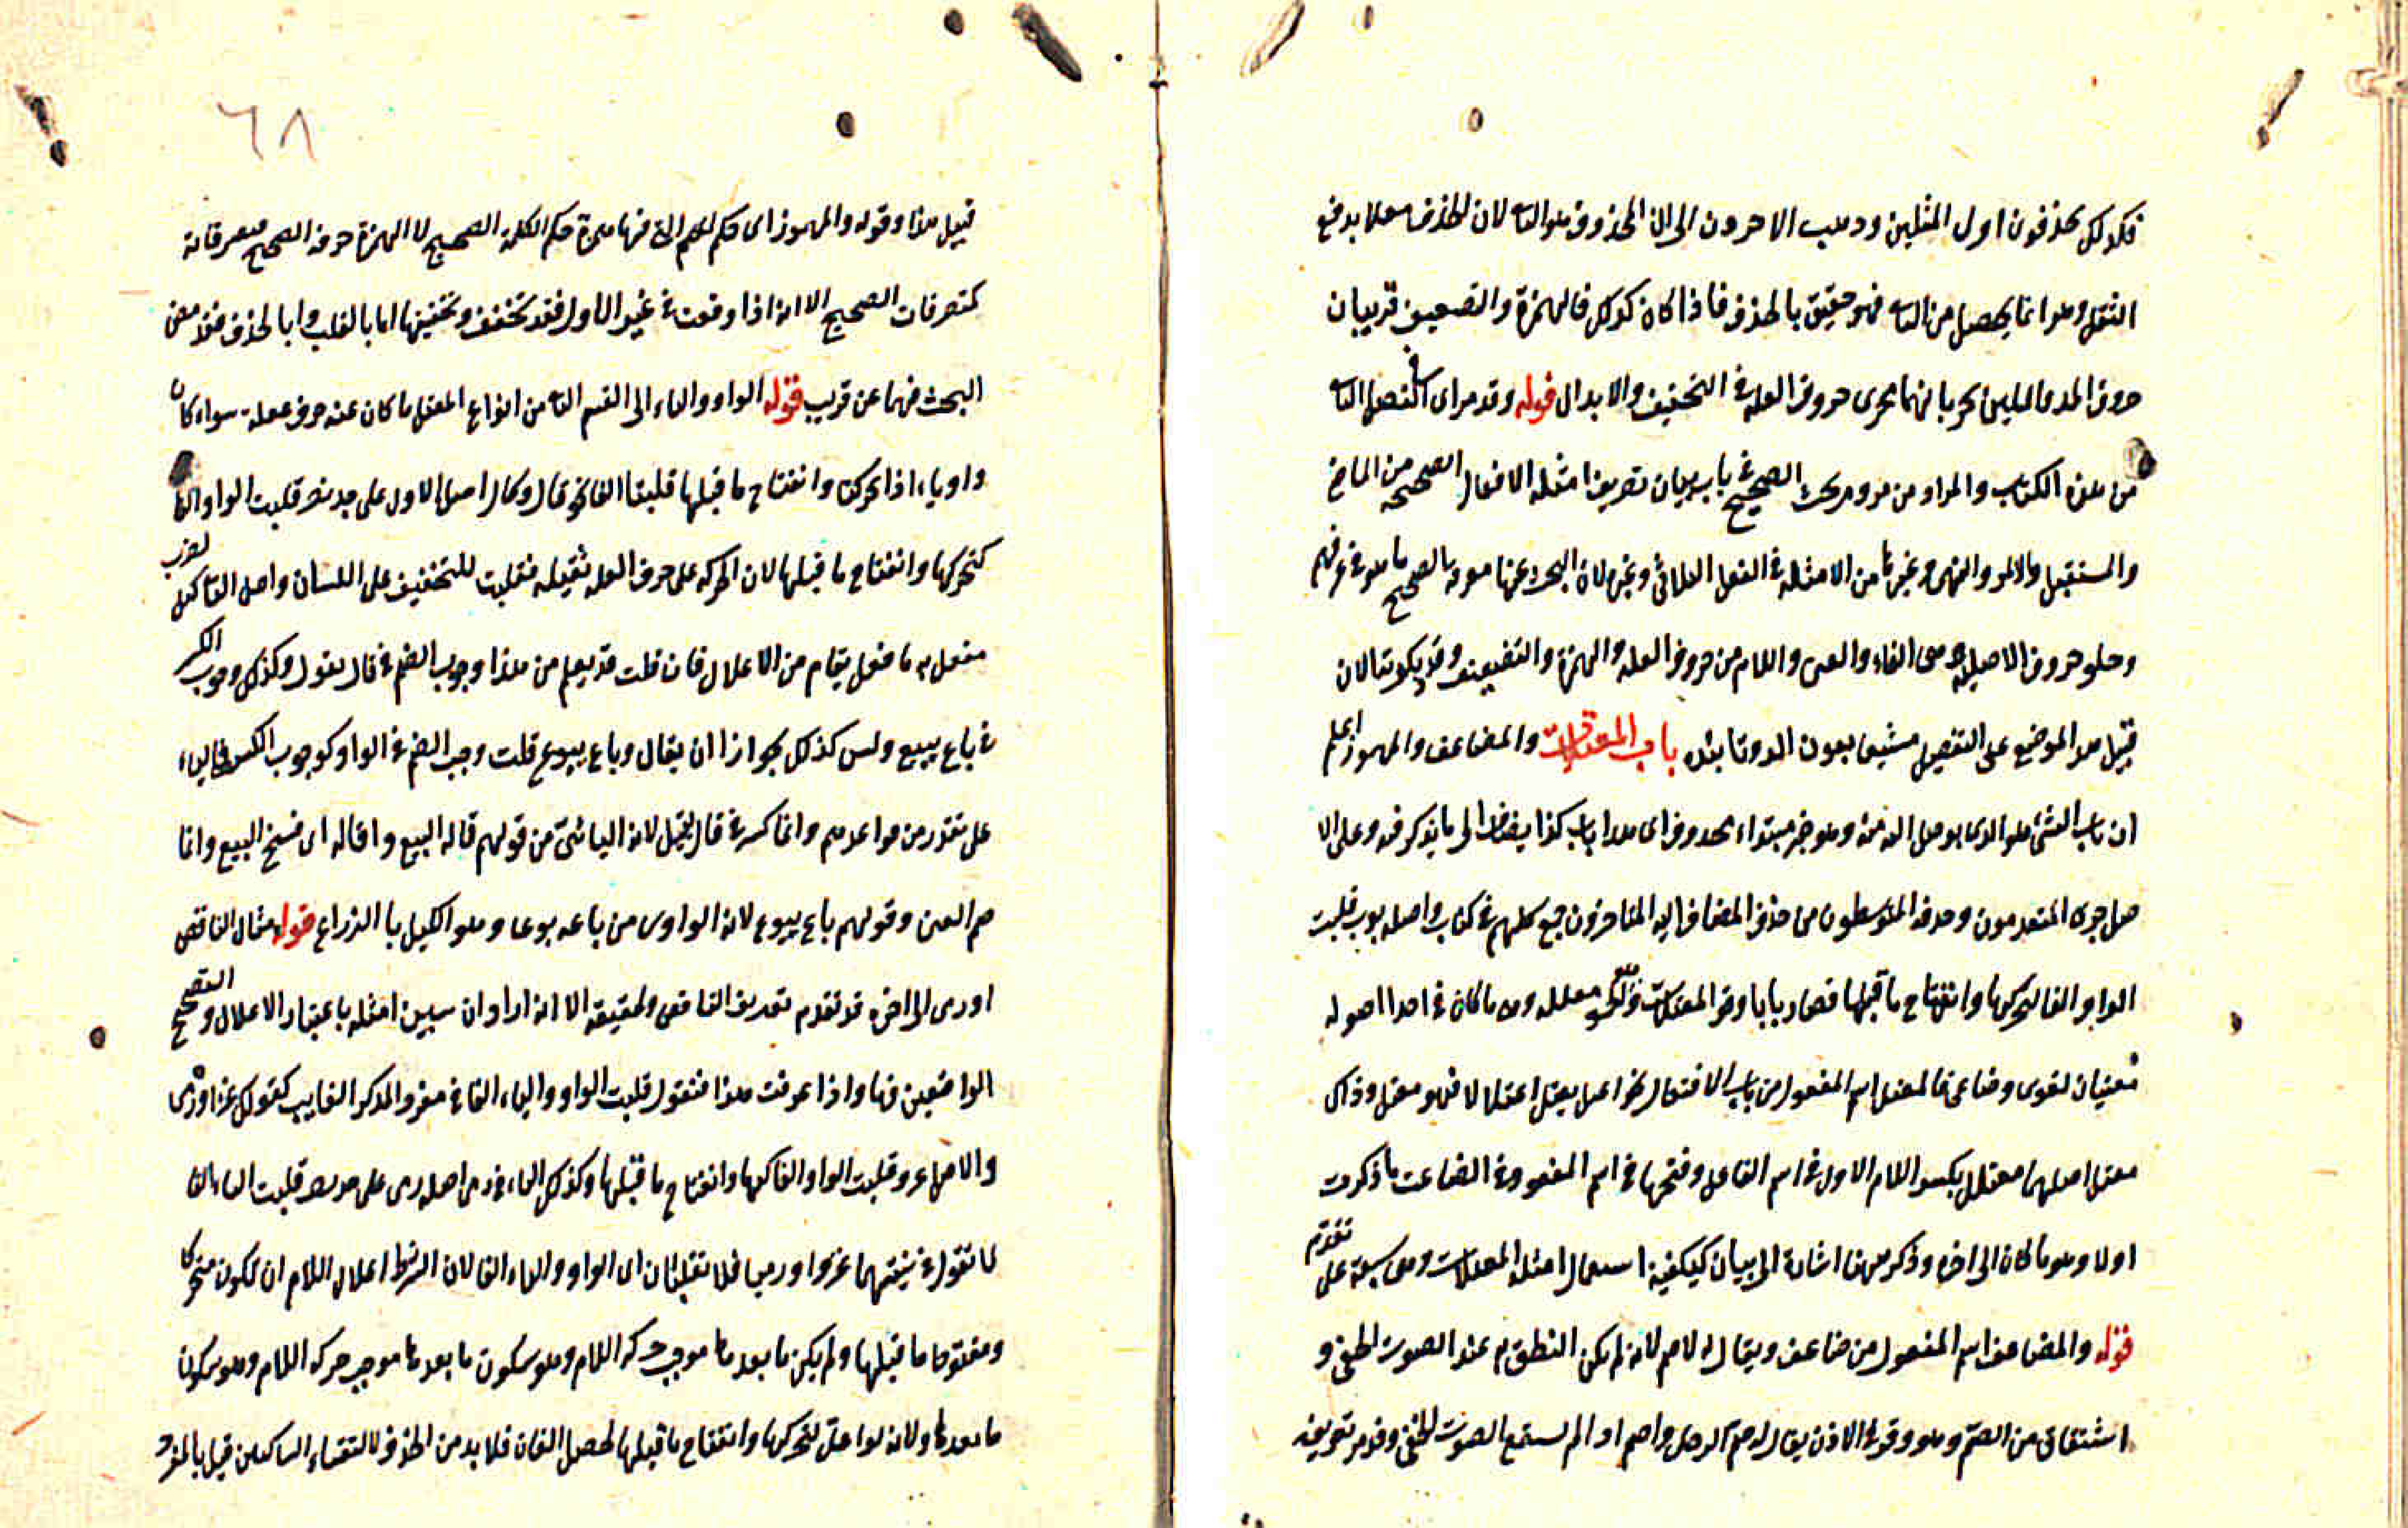 فكذلك يحذفون اول المثلين الاخرون الى ان المحذوف هو الثانى لان الحذف معلل بدفع
الثقل وهو انما يحصل من الثانى فهو حقيق بالحذف فاذا كان كذلك فالهمزة والتضعيف قريبان
حروف المد واللين يجريانهما مجرى حروف العلة فى التخفيف والابدال قوله وقد مر اى فى الفصل الثانى
من هذه الكتاب والمراد من الصحيح باب بيان تصريف امثلة الافعال الصحيحة من الماضى
والمستقبل والامر والنهى وغيرها من الامثلة فى الفعل الثلاثى وغيره لان البحث عنها الصحيح ما هو فى عرفهم
وخلو حروف الاصلية وهى الفاء والعين واللام من حروف العلة والهمزة والتضعيف الان
قبيل هذا الموضع على التفصيل بعون الله وتائيده باب المعتلات والمضاعف والمهموز اعلم
ان باب الشئ هو الذى يوصل اليه منه وهو خبر مبتداء محذوف اى هذا باب كذا يضاف الى ما يذكر فيه وعلى الا
صل جرى المتقدمون وحذف المتوسطون من حذف المضاف اليه المتاخرون جمع كلهم فى كتاب واصله بوب قلبت
الواو الفا لتحركها وانفتاح ما قبلها فصار بابا وقوله المعتلات معتلة وهى ما كان فى احد اصوله
معنيان لغوى وصناعى فالمعتل اسم المفعول من باب الافتعال نحو اعتل يعتل اعتلالا فهو معتل وذاك
معتل اصلهما معتلل بكسر اللام الاول فى اسم الفاعل وفتحها فى اسم المفعول وفى الصناعت ما ذكرت
اولا وهو ما كان الى اخره وذكر ههنا اشارة الى بيان كيفية استعمال امثلة المعتلات وهى سبعة على تقدم
قوله والمضاعف اسم المفعول من ضاعف ويقال له الاصم لانه لم يكن النطق به عند الصوت الخفى و
اشتقاق من الصم وهو وقر فى الاذن يقال له صم الرجل واصم اذا لم يستمع الصوت الخفى وقد مر تعريفه
٦٨
قبيل هذا وقوله والمهموز اى حكم الكلم التى فيها همزة حكم الكلمة الصحيح لا الهمزة حرف الصحيح
كتصرفات الصحيح الا انه اذا وقعت فى غير الاول فقد تخفف وتخفيفها اما بالقلب واما بالحذف
البحث فيهما عن قريب قوله الواو والياء الى القسم الثانى من انواع المعتل ما كان عينه حرف علة سواء كان
واو ياء اذا تحركتا وانفتاح ما قبلها قلبتا الفا نحو قال وكال اصل الاول على قلبت الواو الفا
لتحركها وانفتاح ما قبلها لان الحركة على حرف العلة ثقيلة فقلبت للتخفيف على اللسان واصل الثانى كيل
ففعل به ما فعل بقام من الاعلال فان قلت قد يعلم من هذا وجوب الضم فى قال يقول وكذلك وجوب الكسر
فى باع يبيع وليس كذلك لجواز ان يقال وباع يبوع قلت وجب الضم فى الواو كوجوب الكسر فى الياء
على تقدير من قواعدهم وانما كسر فى قال يقيل لانه اليائى من قولهم قاله البيع واقاله اى فسخ البيع وانما
ضم العين وقولهم باع يبوع لانه الواوى من باعه بوعا وهو الكيل بالذراع قوله مثال الناقص
اورى الى اخره قد تقدم تعريف الناقص وتحقيقه الا انه اراد ان يبين امثلة باعتبار الاعلال والتصحيح
الواقعين فيها واذا عرفت هذا فنقول قلبت الواو والياء الفا فى مفرد المذكر الغايب كقولك غزا ورمى
والاصل غزو قلبت الواو الفا لتحركها وانفتاح ما قبلها وكذلك الياء فى رمى اصله رمى على قلبت الياء الفا
لما تقول فى تثنيتهما غزوا ورميا فلا تقلبان اى الواو والياء الفا لان الشرط اعلال اللام ان تكون متحركا
ومفتوحا ما قبلها ولم يكن ما بعدها موجب حركة اللام وهو سكون ما بعدها موجب حركة اللام وهو سكون
ما بعدها ولانه لو اعل لتحركها وانفتاح ما قبلها لحصل الفان فلا بد من الحذف لالتقاء الساكنين قيل بالمفرد